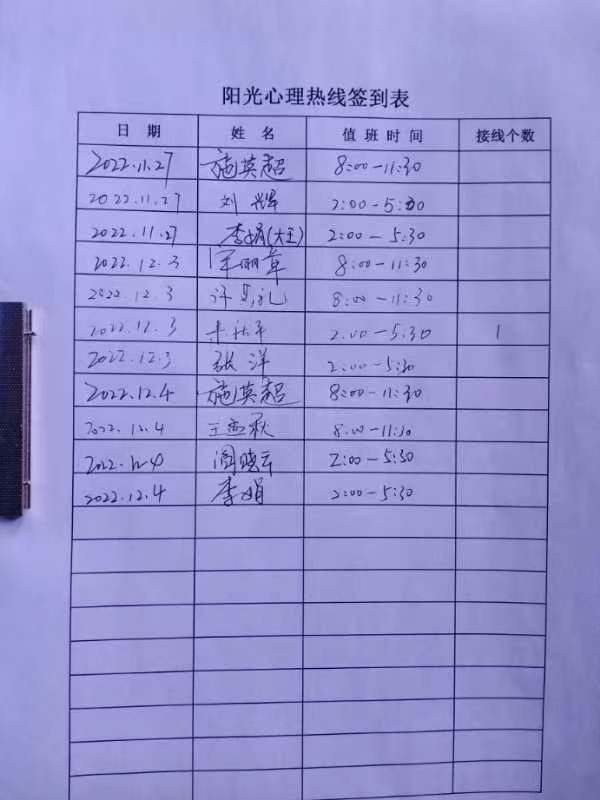 阳光心理热线签到表
日 期 姓 名 值班时间 接线个数
2022.11.27 施英超 8:00-11:30
2022.11.27 刘辉 2:00-5:30
2022.11.27 李娟(大王) 2:00-5:30
2022.12.3 丽章 8:00-11:30
2022.12.3 许 礼 8:00-11:30
2022.12.3 秋平 2:00-5:30 1
2022.12.3 张洋 2:00-5:30
2022.12.4 施英超 8:00-11:30
2022.12.4 王 秋 8:00-11:30
2022.12.4 阎晓云 2:00-5:30
2022.12.4 李娟 2:00-5:30